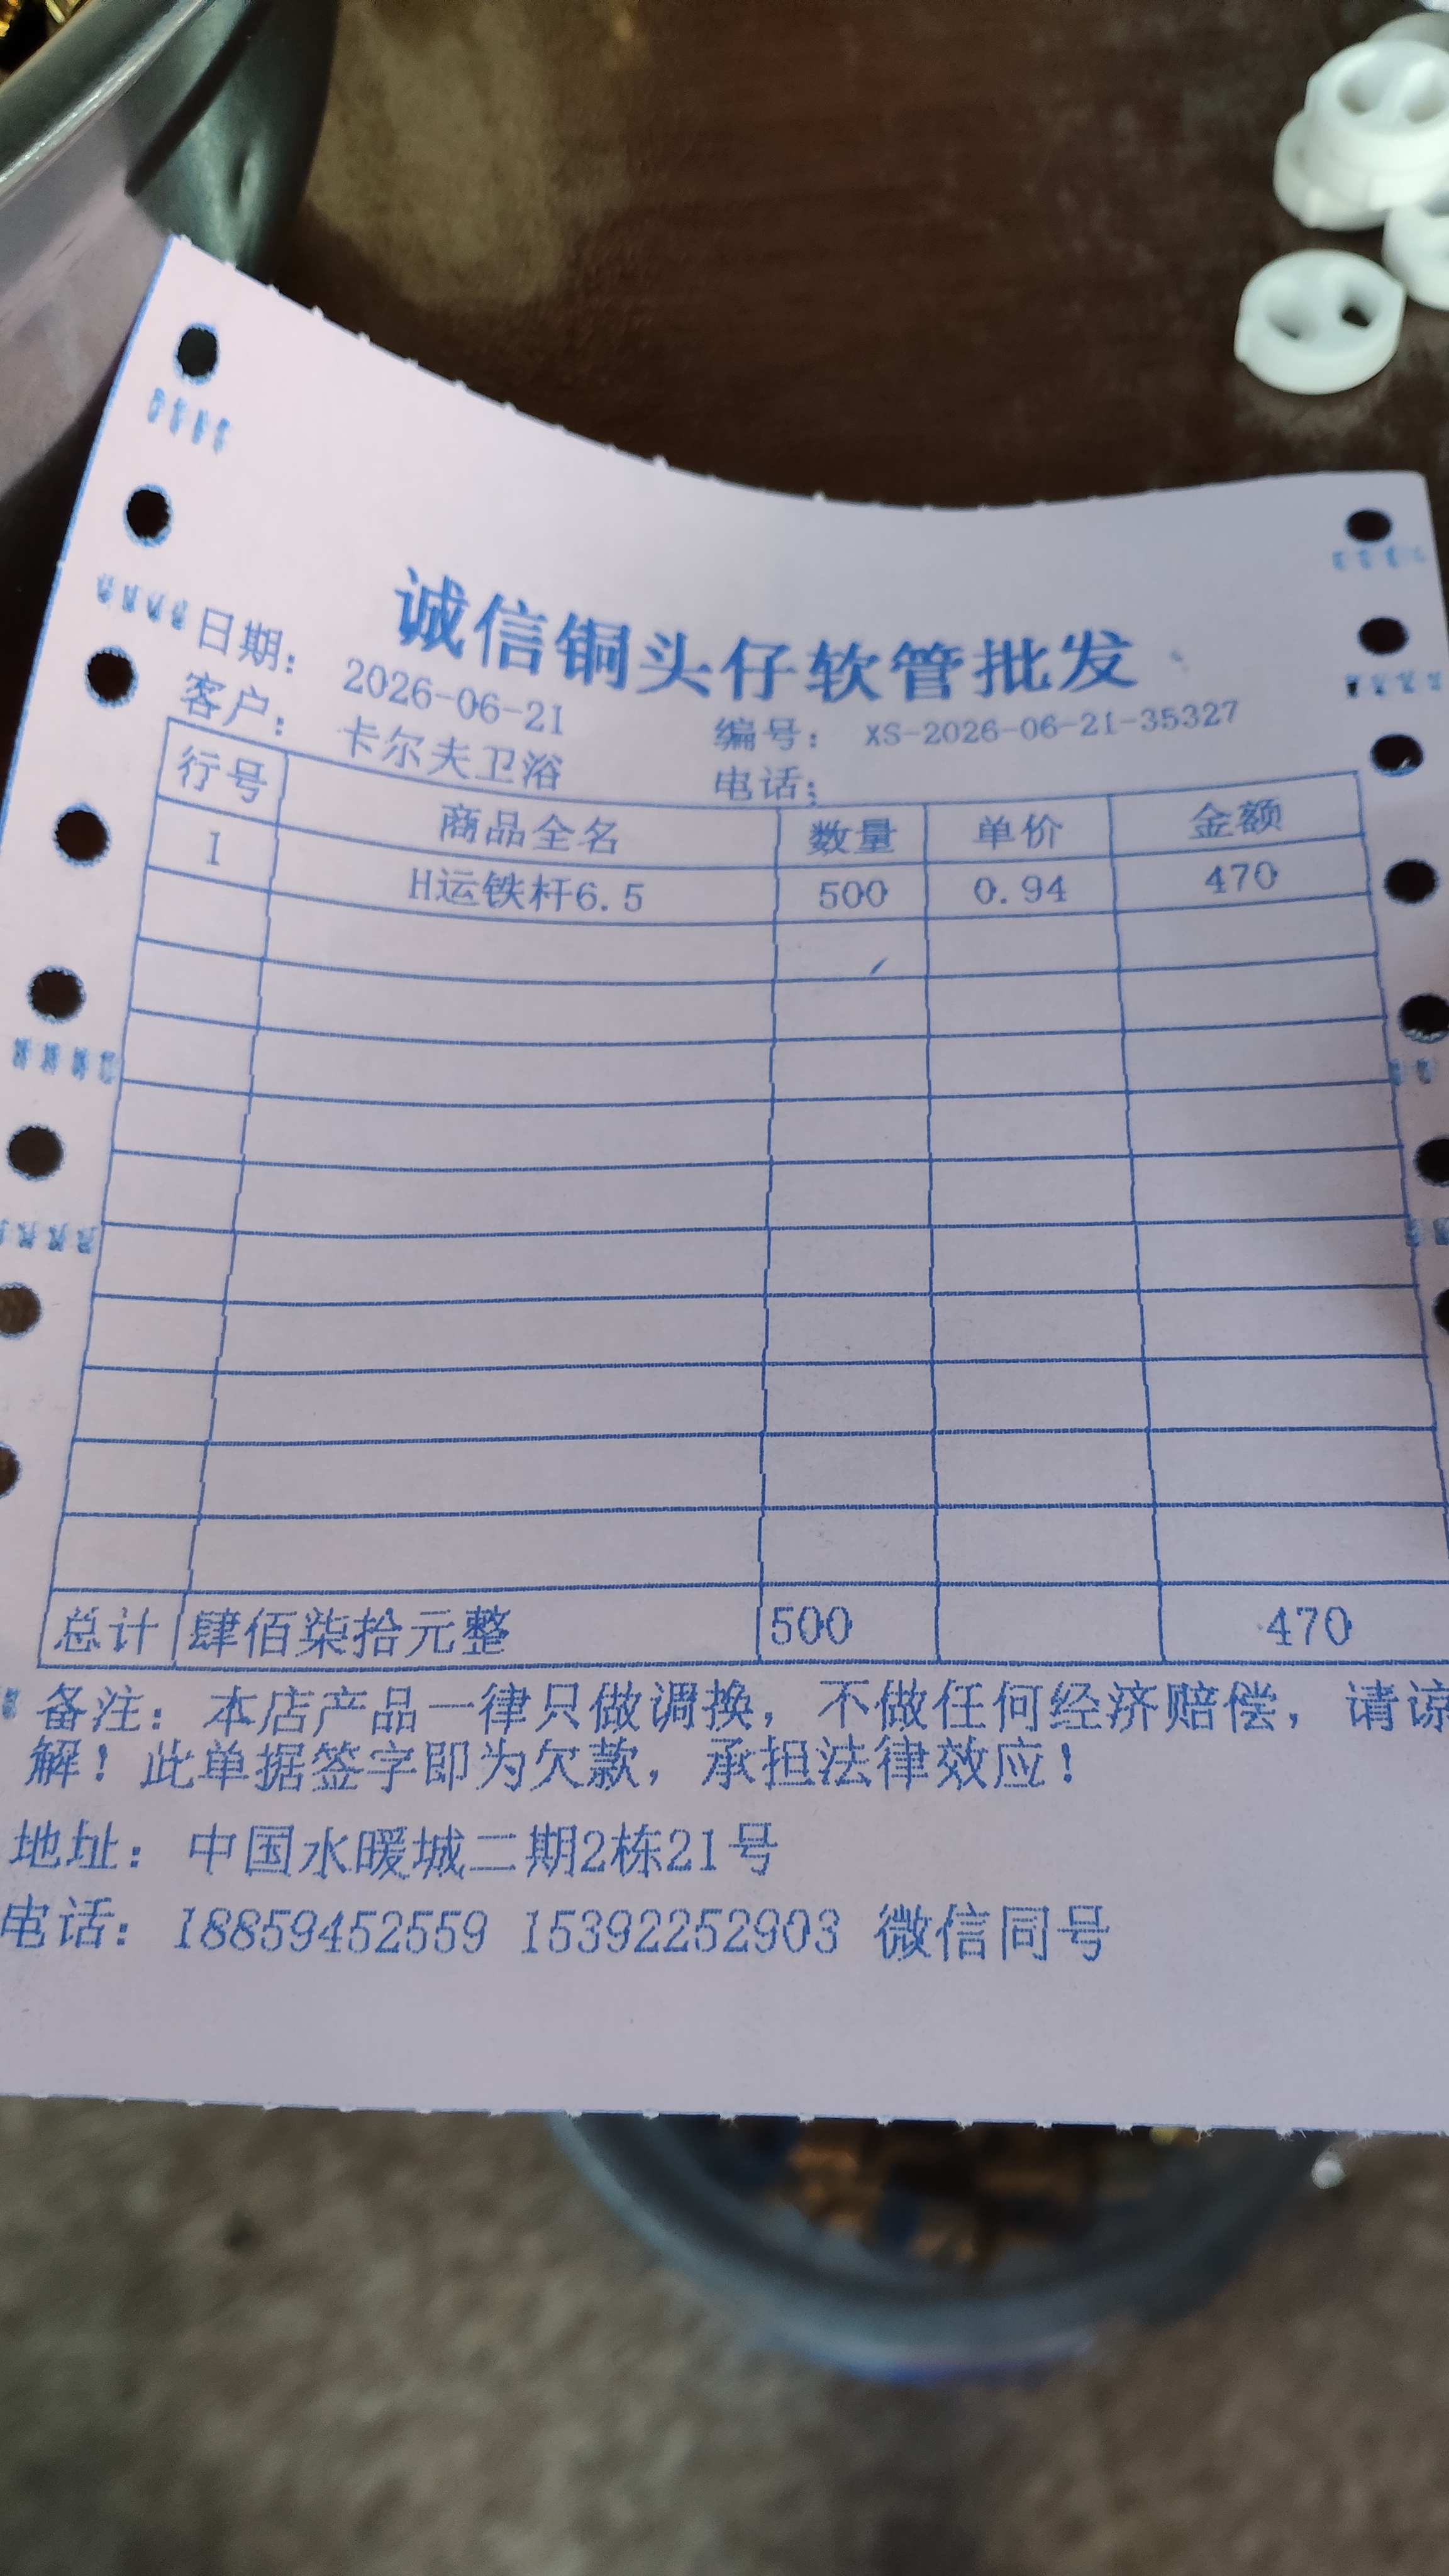 诚信铜头仔软管批发
日期： 2026-06-21 编号： XS-2026-06-21-35327
客户： 卡尔夫卫浴 电话：
行号 商品全名 数量 单价 金额
1 H运铁杆6.5 500 0.94 470
总计 肆佰柒拾元整 500 470
备注：本店产品一律只做调换，不做任何经济赔偿，请谅
解！此单据签字即为欠款，承担法律效应！
地址：中国水暖城二期2栋21号
电话：18859452559 15392252903 微信同号